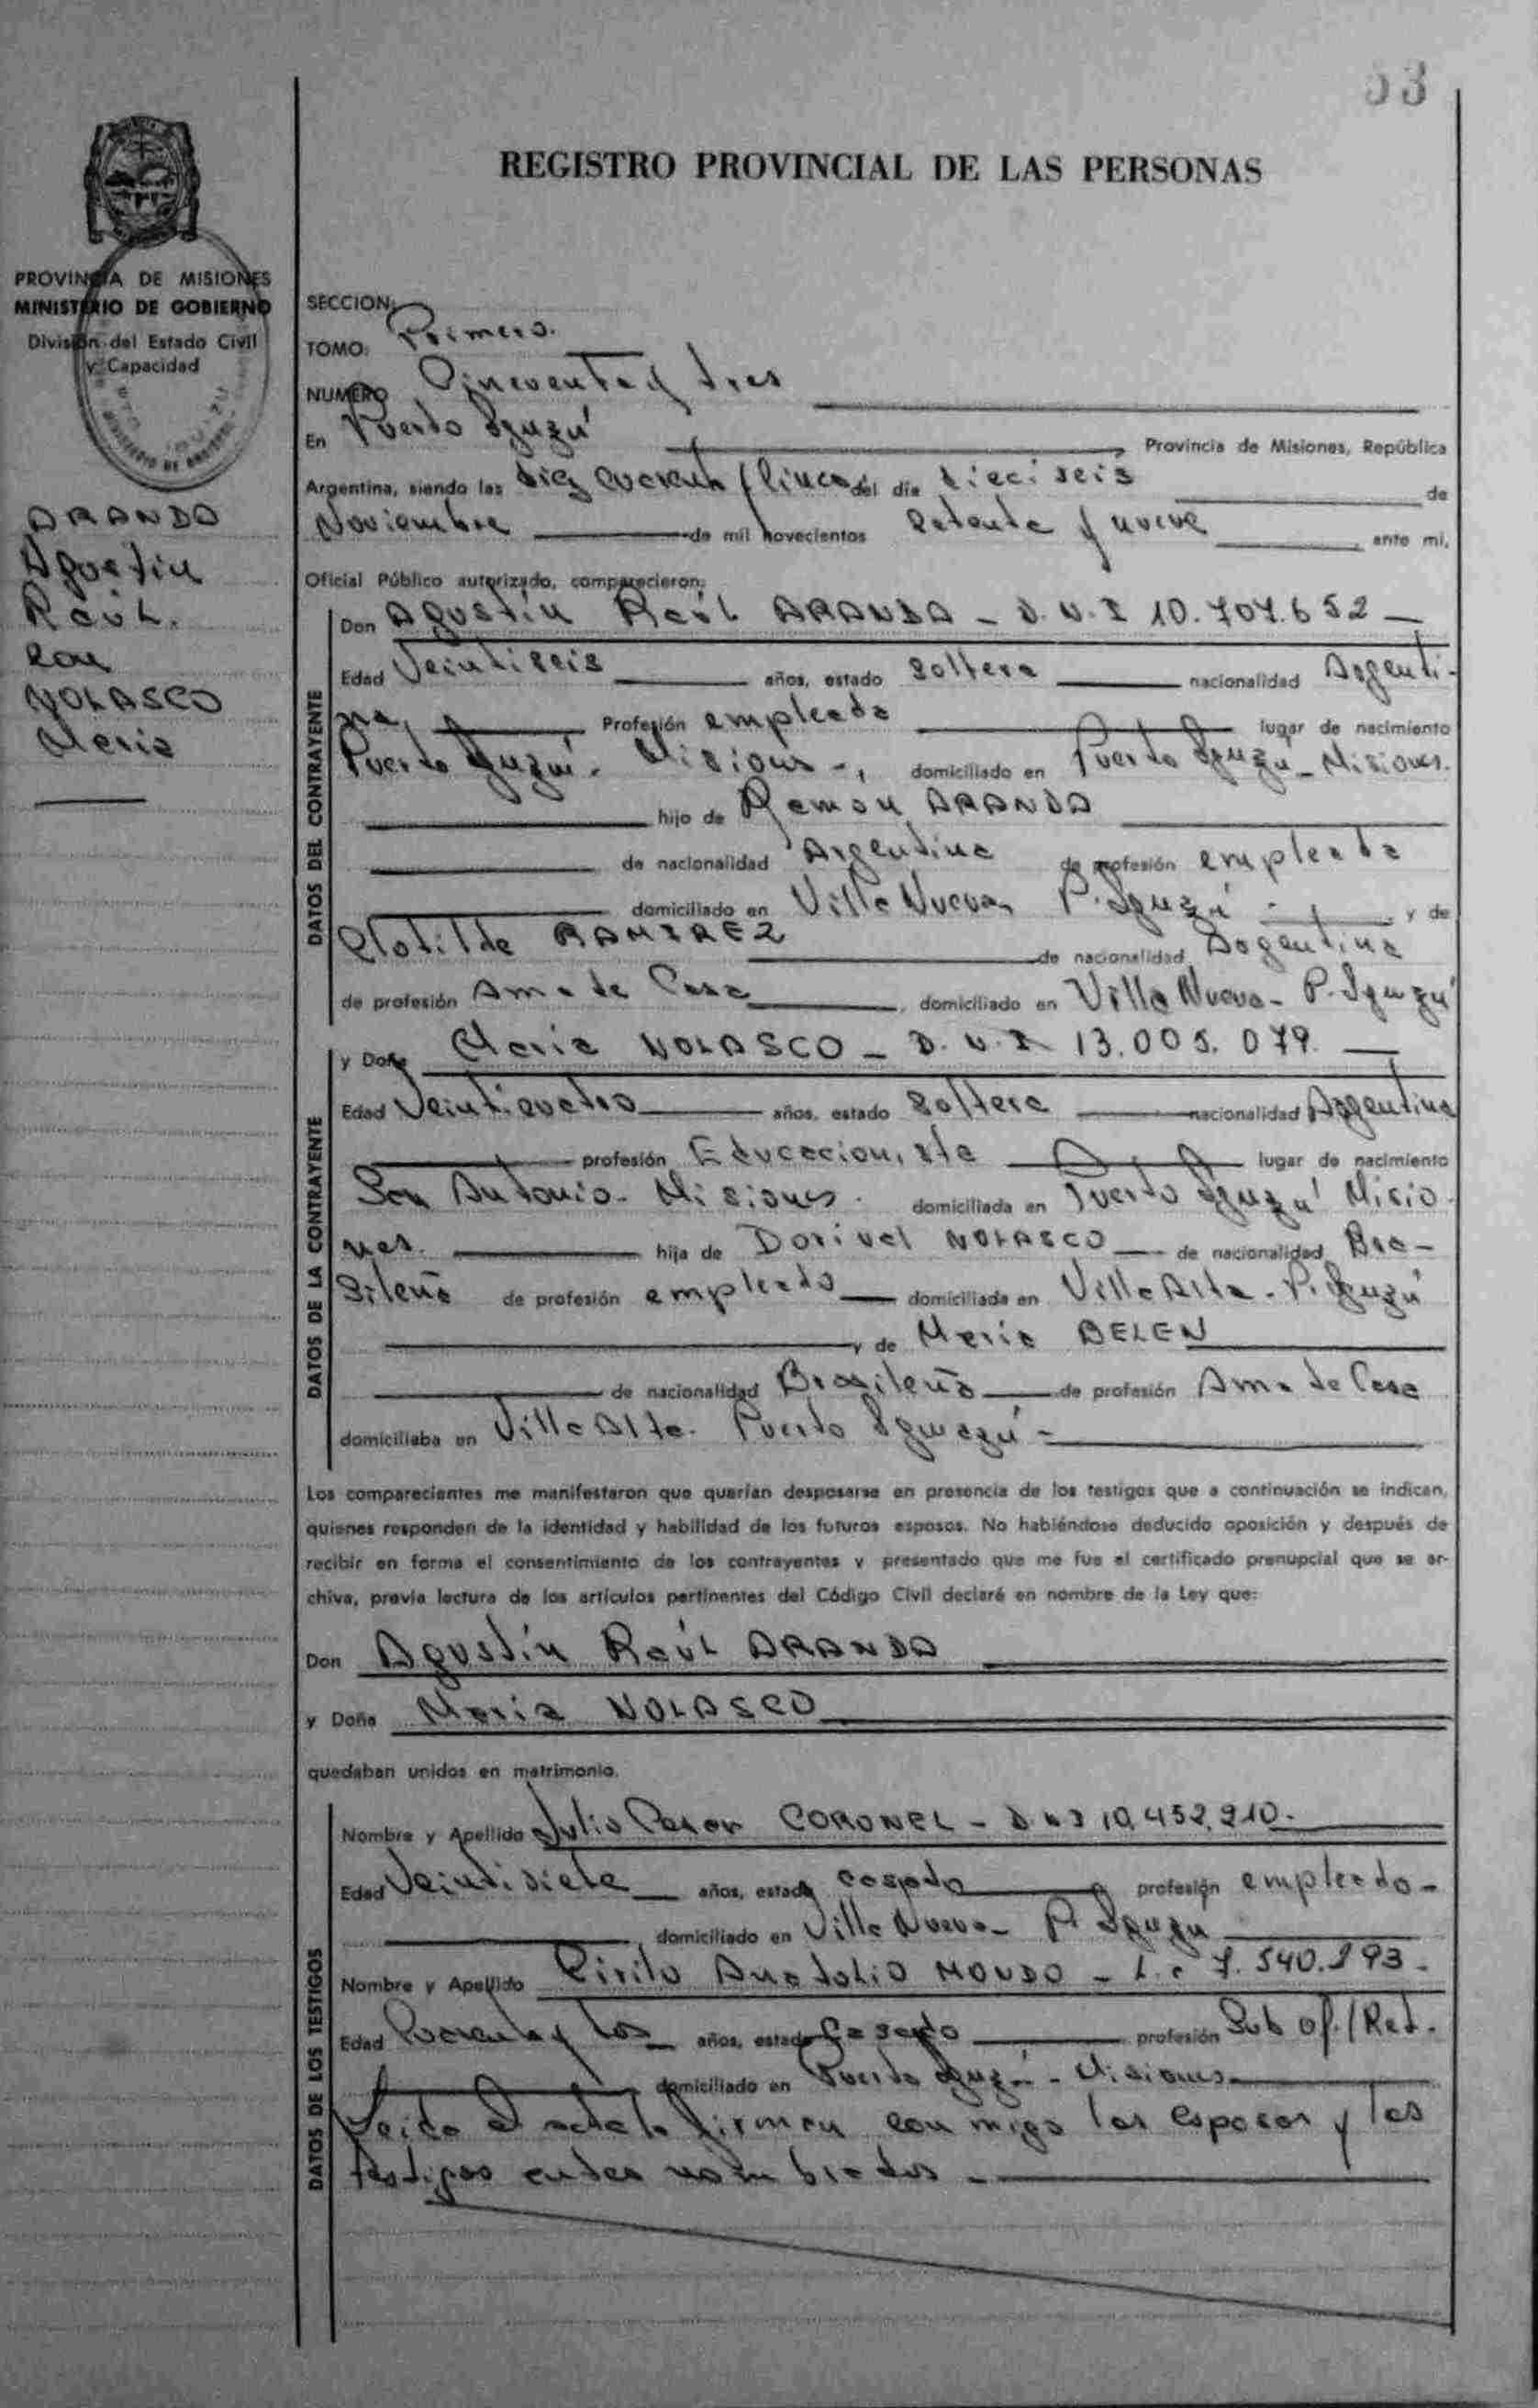 53
REGISTRO PROVINCIAL DE LAS PERSONAS
PROVINCIA DE MISIONES
MINISTERIO DE GOBIERNO
División del Estado Civil
y Capacidad
ARANDA
Agustín
Raúl.
con
NOLASCO
María
SECCION:
TOMO: Primero.
NUMERO Cincuenta y tres
En Puerto Iguazú, Provincia de Misiones, República
Argentina, siendo las diez cuarenta y cinco del día dieciseis de
Noviembre de mil novecientos setenta y nueve ante mi,
Oficial Público autorizado, comparecieron:
DATOS DEL CONTRAYENTE
Don Agustín Raúl ARANDA - D.N.I 10.707.652 -
Edad Veintiseis años, estado soltero nacionalidad Argenti-
na, Profesión empleado lugar de nacimiento
Puerto Iguazú. Misiones -, domiciliado en Puerto Iguazú - Misiones.
hijo de Ramón ARANDA
de nacionalidad Argentina de profesión empleado
domiciliado en Villa Nueva, P. Iguazú - y de
Clotilde RAMIREZ de nacionalidad Argentina
de profesión Ama de Casa, domiciliado en Villa Nueva - P. Iguazú
DATOS DE LA CONTRAYENTE
y Doña María NOLASCO - D.N.I 13.005.079.
Edad Veinticuatro años, estado soltera nacionalidad Argentina
profesión Educacionista lugar de nacimiento
San Antonio - Misiones. domiciliada en Puerto Iguazú Misio-
nes. hija de Dorivel NOLASCO de nacionalidad Bra-
sileño de profesión empleado domiciliada en Villa Alta - P. Iguazú
y de María BELEN
de nacionalidad Brasileña de profesión Ama de Casa
domiciliaba en Villa Alta. Puerto Iguazú -
Los comparecientes me manifestaron que querían desposarse en presencia de los testigos que a continuación se indican,
quienes responden de la identidad y habilidad de los futuros esposos. No habiéndose deducido oposición y después de
recibir en forma el consentimiento de los contrayentes y presentado que me fue el certificado prenupcial que se ar-
chiva, previa lectura de los artículos pertinentes del Código Civil declaré en nombre de la Ley que:
Don Agustín Raúl ARANDA
y Doña María NOLASCO
quedaban unidos en matrimonio.
DATOS DE LOS TESTIGOS
Nombre y Apellido Julio Cesar CORONEL - D.N.I 10.452.910.
Edad Veintisiete años, estado casado profesión empleado -
domiciliado en Villa Nueva - P. Iguazú
Nombre y Apellido Cirilo Anatolio MONDO - L.E 7.540.293.
Edad Cuarenta y dos años, estado Casado profesión Sub of./Ret.
domiciliado en Puerto Iguazú - Misiones
Leida el acta la firman con migo los esposos y los
testigos antes nombrados -